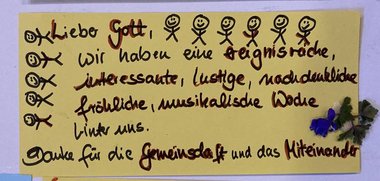 Lieber Gott,
wir haben eine ereignisreiche,
interessante, lustige, nachdenkliche
fröhliche, musikalische Woche
hinter uns.
Danke für die Gemeinschaft und das Miteinander